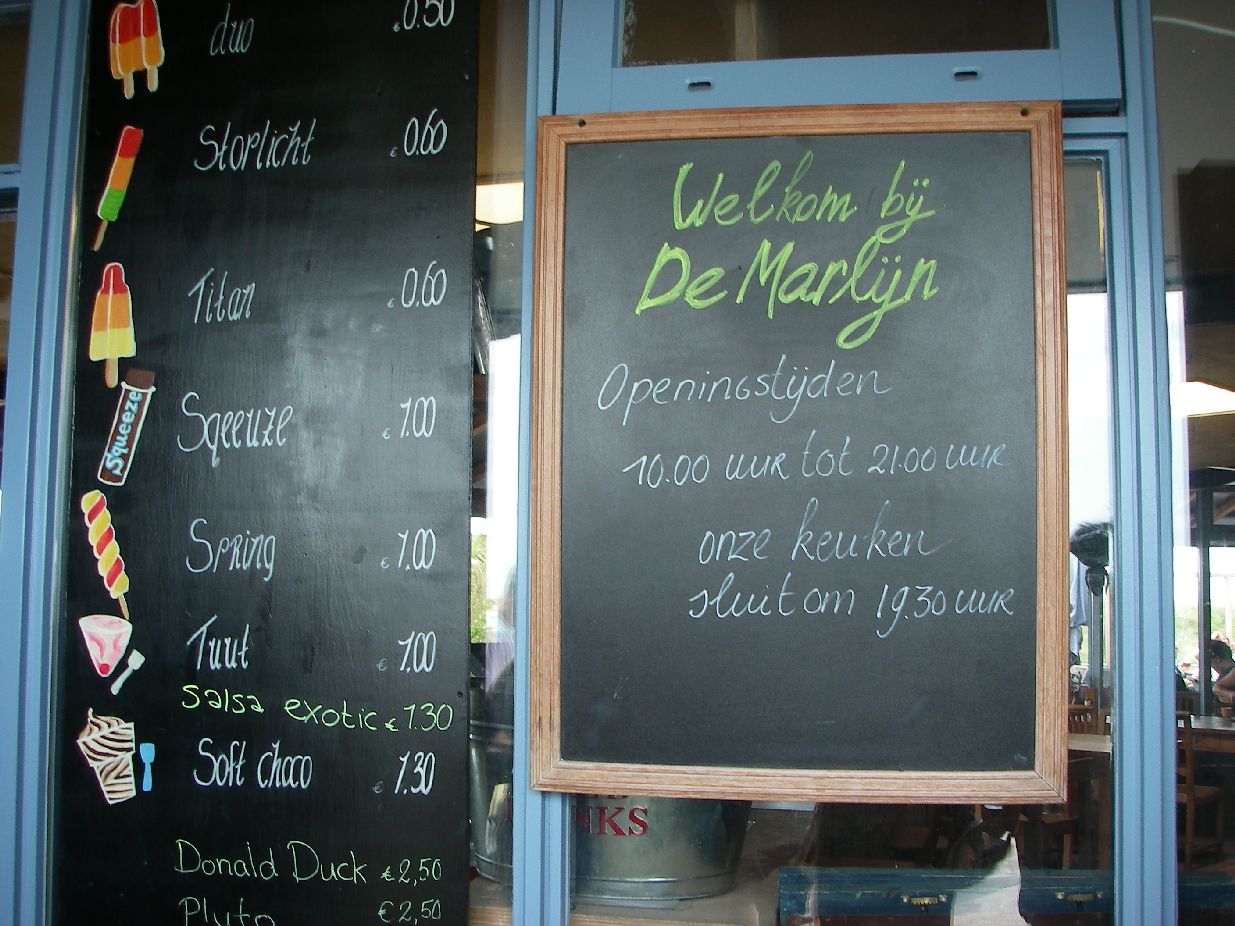 duo €0.50
Storlicht €0.60
Titan €0.60
Squeeze
Sqeeuze €1.00
Spring €1.00
Tuut €1.00
salsa exotic €1.30
Soft choco €1.30
Donald Duck €2,50
Pluto €2,50
Welkom bij
De Marlijn
Openingstijden
10.00 uur tot 21.00 uur
onze keuken
sluit om 19.30 uur
NKS